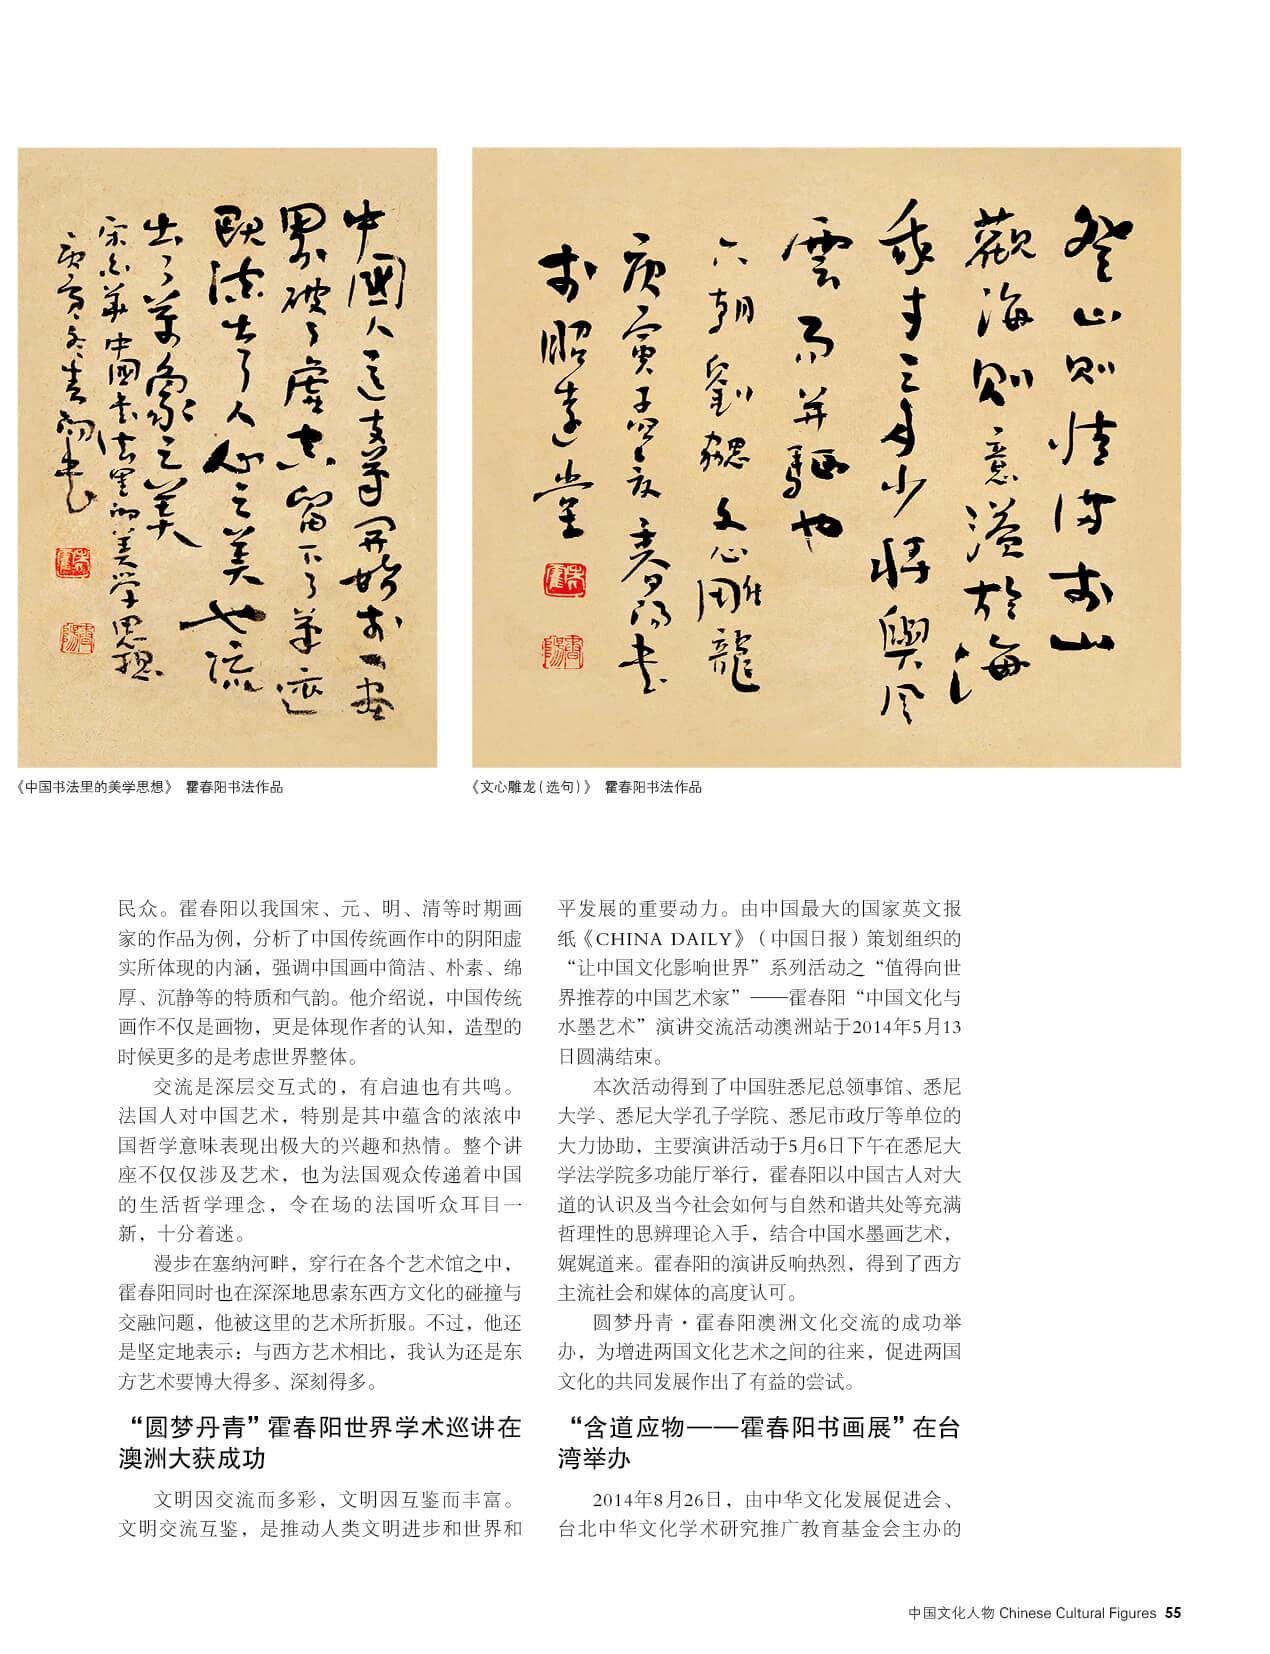 中國人這支筆開始於一畫
界破了虛空留下了筆迹
既流出了人心之美也流
出了萬象之美
宗白華中國書法里的美学思想
庚寅冬春陽書
登山則情滿於山
觀海則意溢於海
我才之多少將與風
雲而并驅也
六朝劉勰文心雕龍
庚寅夜春陽書
於昭遠堂
《中国书法里的美学思想》 霍春阳书法作品
《文心雕龙(选句)》 霍春阳书法作品
民众。霍春阳以我国宋、元、明、清等时期画
家的作品为例，分析了中国传统画作中的阴阳虚
实所体现的内涵，强调中国画中简洁、朴素、绵
厚、沉静等的特质和气韵。他介绍说，中国传统
画作不仅是画物，更是体现作者的认知，造型的
时候更多的是考虑世界整体。
交流是深层交互式的，有启迪也有共鸣。
法国人对中国艺术，特别是其中蕴含的浓浓中
国哲学意味表现出极大的兴趣和热情。整个讲
座不仅仅涉及艺术，也为法国观众传递着中国
的生活哲学理念，令在场的法国听众耳目一
新，十分着迷。
漫步在塞纳河畔，穿行在各个艺术馆之中，
霍春阳同时也在深深地思索东西方文化的碰撞与
交融问题，他被这里的艺术所折服。不过，他还
是坚定地表示：与西方艺术相比，我认为还是东
方艺术要博大得多、深刻得多。
“圆梦丹青”霍春阳世界学术巡讲在
澳洲大获成功
文明因交流而多彩，文明因互鉴而丰富。
文明交流互鉴，是推动人类文明进步和世界和
平发展的重要动力。由中国最大的国家英文报
纸《CHINA DAILY》（中国日报）策划组织的
“让中国文化影响世界”系列活动之“值得向世
界推荐的中国艺术家”——霍春阳“中国文化与
水墨艺术”演讲交流活动澳洲站于2014年5月13
日圆满结束。
本次活动得到了中国驻悉尼总领事馆、悉尼
大学、悉尼大学孔子学院、悉尼市政厅等单位的
大力协助，主要演讲活动于5月6日下午在悉尼大
学法学院多功能厅举行，霍春阳以中国古人对大
道的认识及当今社会如何与自然和谐共处等充满
哲理性的思辨理论入手，结合中国水墨画艺术，
娓娓道来。霍春阳的演讲反响热烈，得到了西方
主流社会和媒体的高度认可。
圆梦丹青·霍春阳澳洲文化交流的成功举
办，为增进两国文化艺术之间的往来，促进两国
文化的共同发展作出了有益的尝试。
“含道应物——霍春阳书画展”在台
湾举办
2014年8月26日，由中华文化发展促进会、
台北中华文化学术研究推广教育基金会主办的
中国文化人物 Chinese Cultural Figures 55